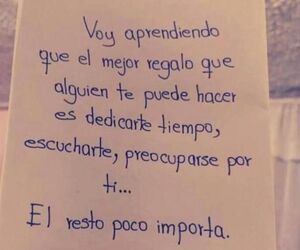 Voy aprendiendo
que el mejor regalo que
alguien te puede hacer
es dedicarte tiempo,
escucharte, preocuparse por
ti...
El resto poco importa.